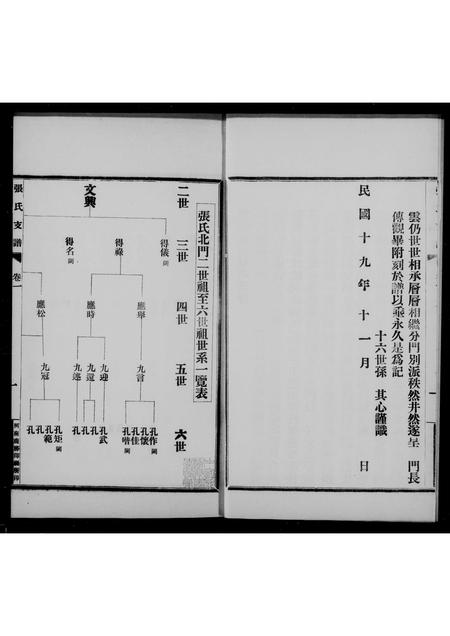 雲仍世世相承層層相繼分門別派秩然井然遂呈 門長
傳觀畢附刻於譜以乘永久是為記
十六世孫 其心謹識
民國十九年十一月 日
張氏北門二世祖至六世祖世系一覽表
二世 三世 四世 五世 六世
文興
得儀嗣
得祿
得名嗣
應舉
應時
應松
九言
九迎
九還
九冠
孔作嗣
孔懷
孔佳
孔嗣
孔武
孔
孔
孔矩嗣
孔範
孔
孔
張氏支譜 卷一
一